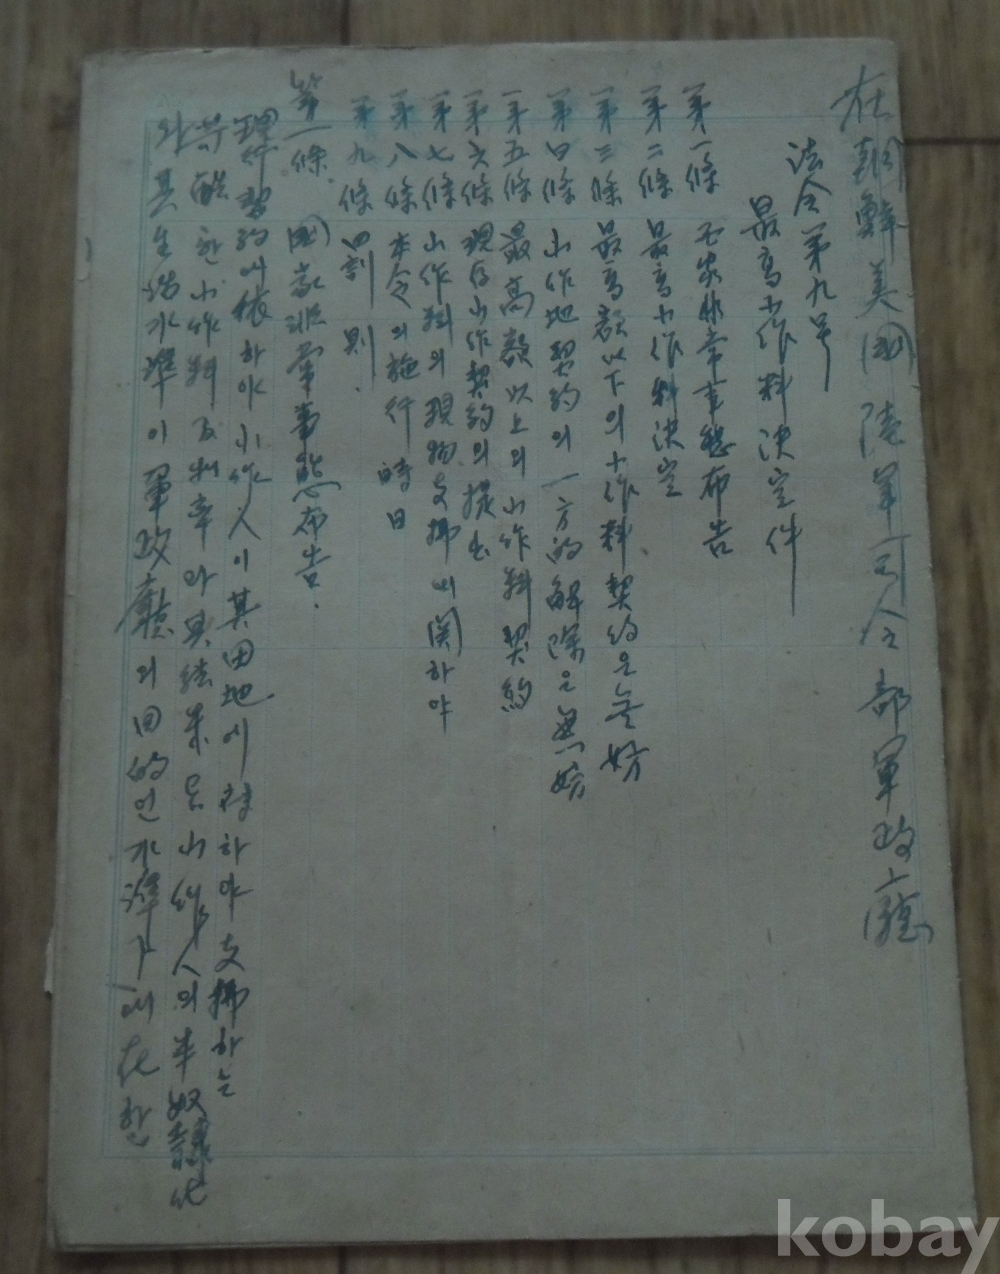 在朝鮮美國陸軍司令部軍政廳
法令第九号
最高小作料決定件
第一條 國家非常事態布告
第二條 最高小作料決定
第三條 最高額以下의小作料契約은無妨
第四條 小作地契約의一方的解除은無妨
第五條 最高額以上의小作料契約
第六條 現存小作契約의提出
第七條 小作料의現物支拂에関하야
第八條 本令의施行時日
第九條 罰則.
第一條. 國家非常事態布告.
現行契約에依하야小作人이其田地에対하야支拂하는
苛酷한小作料及利率와其結果로小作人의半奴隷化
와其生活水準이軍政廳의目的인水準下에在한
kobay